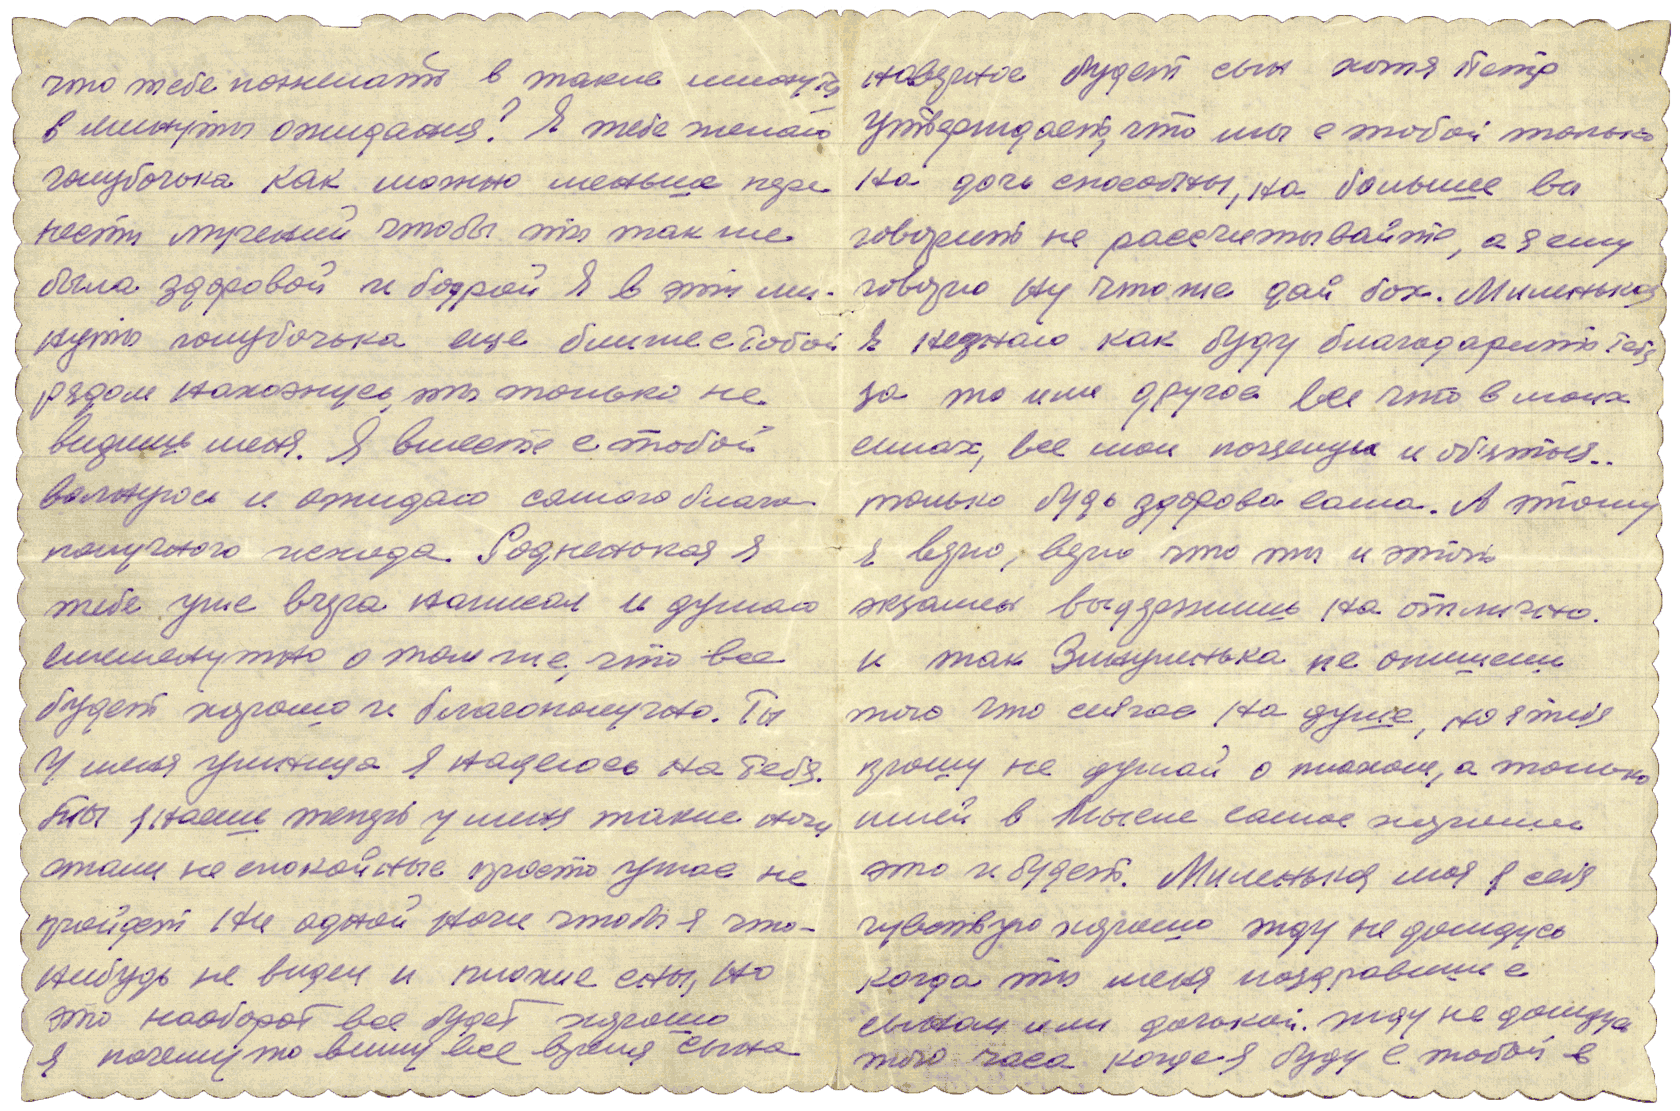 что тебе пожелать в такие минуты
в минуты ожидания? Я тебе желаю
голубочька как можно меньше пере
нести мучений чтобы ты так же
была здоровой и бодрой Я в эти ми-
нуты голубочька еще ближе с тобой
рядом нахожусь, ты только не
видишь меня. Я вместе с тобой
волнуюсь и ожидаю самого благо
получного исхода. Родненькая я
тебе уже вчера написал и думаю
ежеминутно о том же, что все
будет хорошо и благополучно. Ты
у меня умница Я надеюсь на тебя.
Ты знаешь теперь у меня такие ночи
стали не спокойные просто ужас не
пройдет ни одной ночи чтобы я что-
нибудь не видел и плохие сны, но
это наоборот все будет хорошо
Я почему то вижу все время сына
наверное будет сын хотя Петр
утверждает, что мы с тобой только
на дочь способны, на большее вы
говорит не рассчитывайте, а я ему
говорю ну что же дай бог. Миленькая
Я незнаю как буду благодарить тебя
за то или другое все что в моих
силах, все мои поцелуи и объятья..
только будь здорова сама. А этому
я верю, верю что ты и этот
экзамен выдержишь на отлично.
и так Зинулинька не опишешь
того что сейчас на душе, но я тебя
прошу не думай о плохом, а только
имей в мысле самое хорошее
это и будет. Миленькая моя я себя
чувствую хорошо жду не дождусь
когда ты меня поздравишь с
сыном или дочькой. жду не дождусь
того часа когда я буду с тобой в